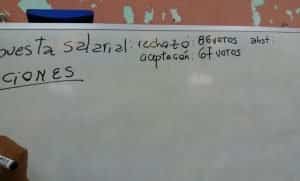 uesta salarial: rechazo: 86 votos abst:
aceptación: 67 votos
CIONES